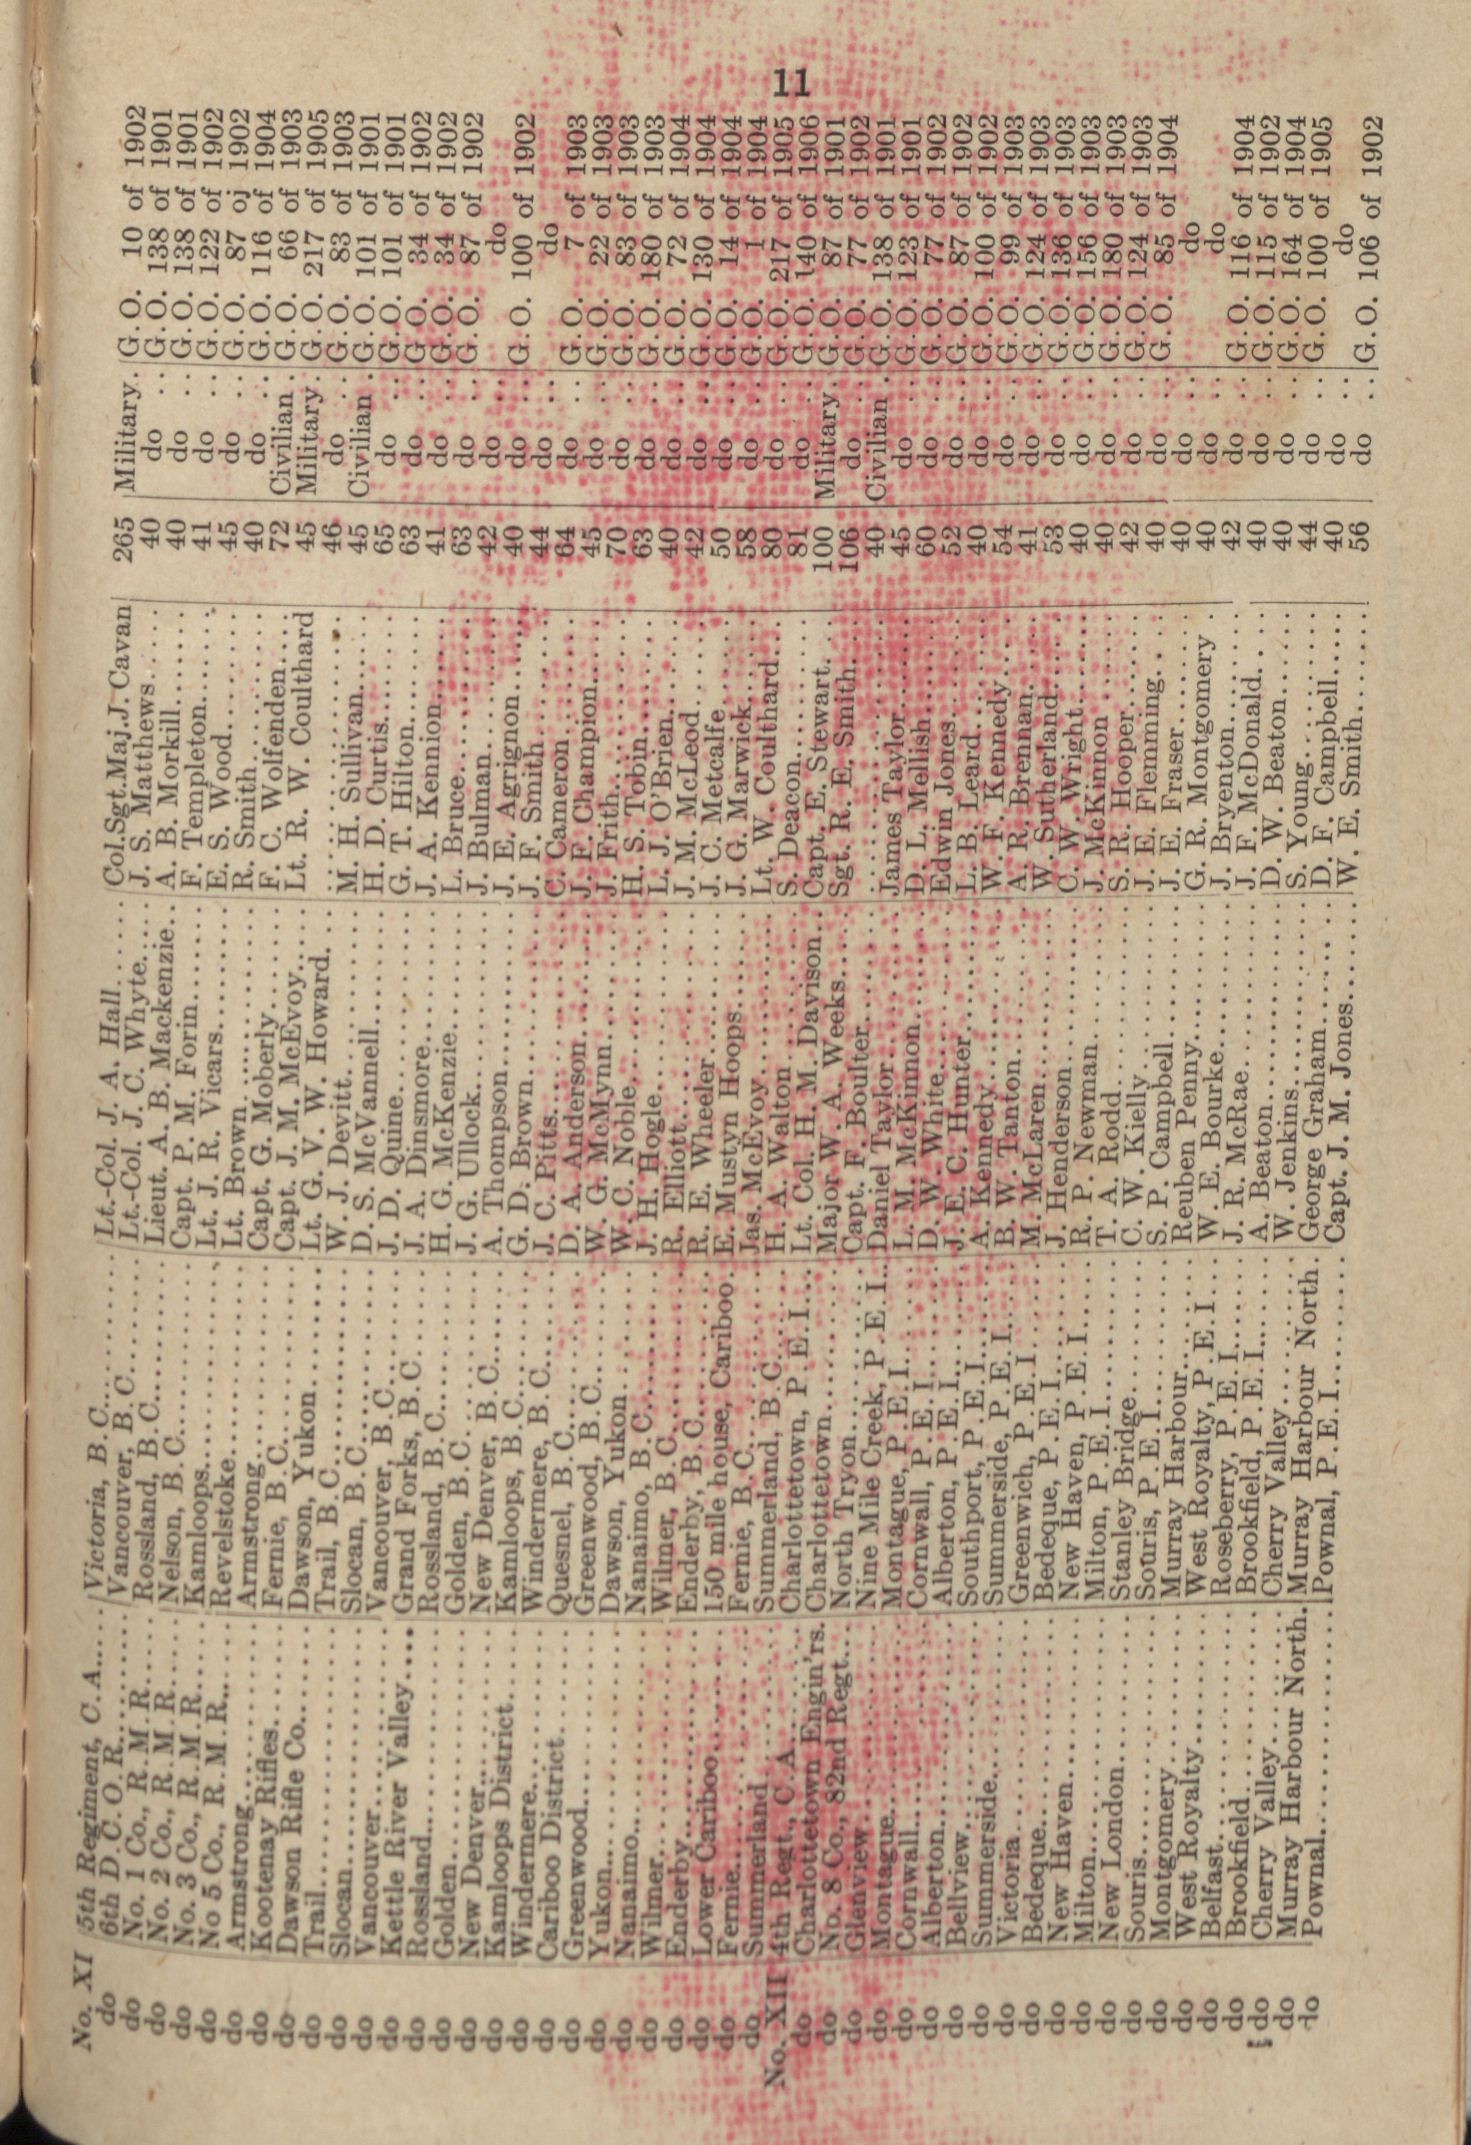 11
No. XI 5th Regiment, C. A.... Victoria, B. C. Lt.-Col. J. A. Hall Col.Sgt.Maj.J. Cavan 265 Military. G. O. 10 of 1902
do 6th D. C. O. R. Vancouver, B. C. Lt.-Col. J. C. Whyte J. S. Matthews 40 do G. O. 138 of 1901
do No. 1 Co., R. M. R. Rossland, B. C. Lieut. A. B. Mackenzie A. B. Morkill 40 do G. O. 138 of 1901
do No. 2 Co., R. M. R. Nelson, B. C. Capt. P. M. Forin F. Templeton 41 do G. O. 122 of 1902
do No. 3 Co., R. M. R. Kamloops Lt. J. R. Vicars E. S. Wood 45 do G. O. 87 oj 1902
do No 5 Co., R. M. R. Revelstoke Lt. Brown R. Smith 40 do G. O. 116 of 1904
do Armstrong Armstrong Capt. G. Moberly F. C. Wolfenden 72 Civilian G. O. 66 of 1903
do Kootenay Rifles Fernie, B. C. Capt. J. M. McEvoy Lt. R. W. Coulthard 45 Military G. O. 217 of 1905
do Dawson Rifle Co. Dawson, Yukon Lt. G. V. W. Howard 46 do G. O. 83 of 1903
do Trail Trail, B. C. W. J. Devitt M. H. Sullivan 45 Civilian G. O. 101 of 1901
do Slocan Slocan, B. C. D. S. McVannell H. D. Curtis 65 do G. O. 101 of 1901
do Vancouver Vancouver, B. C. J. D. Quine G. T. Hilton 63 do G. O. 34 of 1902
do Kettle River Valley Grand Forks, B. C. J. A. Dinsmore J. A. Kennion 41 do G. O. 34 of 1902
do Rossland Rossland, B. C. H. G. McKenzie L. Bruce 63 do G. O. 87 of 1902
do Golden Golden, B. C. J. G. Ullock J. Bulman 42 do do
do New Denver New Denver, B. C. A. Thompson J. E. Agrignon 40 do G. O. 100 of 1902
do Kamloops District Kamloops, B. C. G. D. Brown J. F. Smith 44 do do
do Windermere Windermere, B. C. J. C. Pitts C. Cameron 64 do G. O. 7 of 1903
do Cariboo District Quesnel, B. C. D. A. Anderson J. F. Champion 45 do G. O. 22 of 1903
do Greenwood Greenwood, B. C. W. G. McMynn J. Frith 70 do G. O. 83 of 1903
do Yukon Dawson, Yukon W. C. Noble H. S. Tobin 63 do G. O. 180 of 1903
do Nanaimo Nanaimo, B. C. J. H. Hogle L. J. O'Brien 40 do G. O. 72 of 1904
do Wilmer Wilmer, B. C. R. Elliott J. M. McLeod 42 do G. O. 130 of 1904
do Enderby Enderby, B. C. R. E. Wheeler J. C. Metcalfe 50 do G. O. 14 of 1904
do Lower Cariboo 150 mile house, Cariboo E. Mustyn Hoops J. G. Marwick 58 do G. O. 1 of 1904
do Fernie Fernie, B. C. Jas. McEvoy Lt. W. Coulthard 80 do G. O. 217 of 1905
do Summerland Summerland, B. C. H. A. Walton S. Deacon 81 do G. O. 140 of 1906
No. XII 4th Regt., C. A. Charlottetown, P. E. I. Lt. Col. H. M. Davison Capt. E. Stewart 100 Military G. O. 87 of 1901
do Charlottetown Engin'rs. Charlottetown Major W. A. Weeks Sgt. R. E. Smith 106 do G. O. 77 of 1902
do No. 8 Co., 82nd Regt. North Tryon Capt. F. Boulter 40 Civilian G. O. 138 of 1901
do Glenview Nine Mile Creek, P. E. I. Daniel Taylor James Taylor 45 do G. O. 123 of 1901
do Montague Montague, P. E. I. L. M. McKinnon D. L. Mellish 60 do G. O. 77 of 1902
do Cornwall Cornwall, P. E. I. D. W. White Edwin Jones 52 do G. O. 87 of 1902
do Alberton Alberton, P. E. I. J. E. C. Hunter L. B. Leard 40 do G. O. 100 of 1902
do Bellview Southport, P. E. I. A. Kennedy W. F. Kennedy 54 do G. O. 99 of 1903
do Summerside Summerside, P. E. I. B. W. Tanton A. R. Brennan 41 do G. O. 124 of 1903
do Victoria Greenwich, P. E. I. M. McLaren W. Sutherland 53 do G. O. 136 of 1903
do Bedeque Bedeque, P. E. I. J. Henderson C. W. Wright 40 do G. O. 156 of 1903
do New Haven New Haven, P. E. I. R. P. Newman J. McKinnon 40 do G. O. 180 of 1903
do Milton Milton, P. E. I. T. A. Rodd S. R. Hooper 42 do G. O. 124 of 1903
do New London Stanley Bridge C. W. Kielly J. E. Flemming 40 do G. O. 85 of 1904
do Souris Souris, P. E. I. S. P. Campbell J. E. Fraser 40 do do
do Montgomery Murray Harbour Reuben Penny G. R. Montgomery 40 do do
do West Royalty West Royalty, P. E. I. W. E. Bourke J. Bryenton 42 do G. O. 116 of 1904
do Belfast Roseberry, P. E. I. J. R. McRae J. F. McDonald 40 do G. O. 115 of 1902
do Brookfield Brookfield, P. E. I. A. Beaton D. W. Beaton 40 do G. O. 164 of 1904
do Cherry Valley Cherry Valley W. Jenkins S. Young 44 do G. O. 100 of 1905
do Murray Harbour North. Murray Harbour North. George Graham D. F. Campbell 40 do do
do Pownal Pownal, P. E. I. Capt. J. M. Jones W. E. Smith 56 do G. O. 106 of 1902